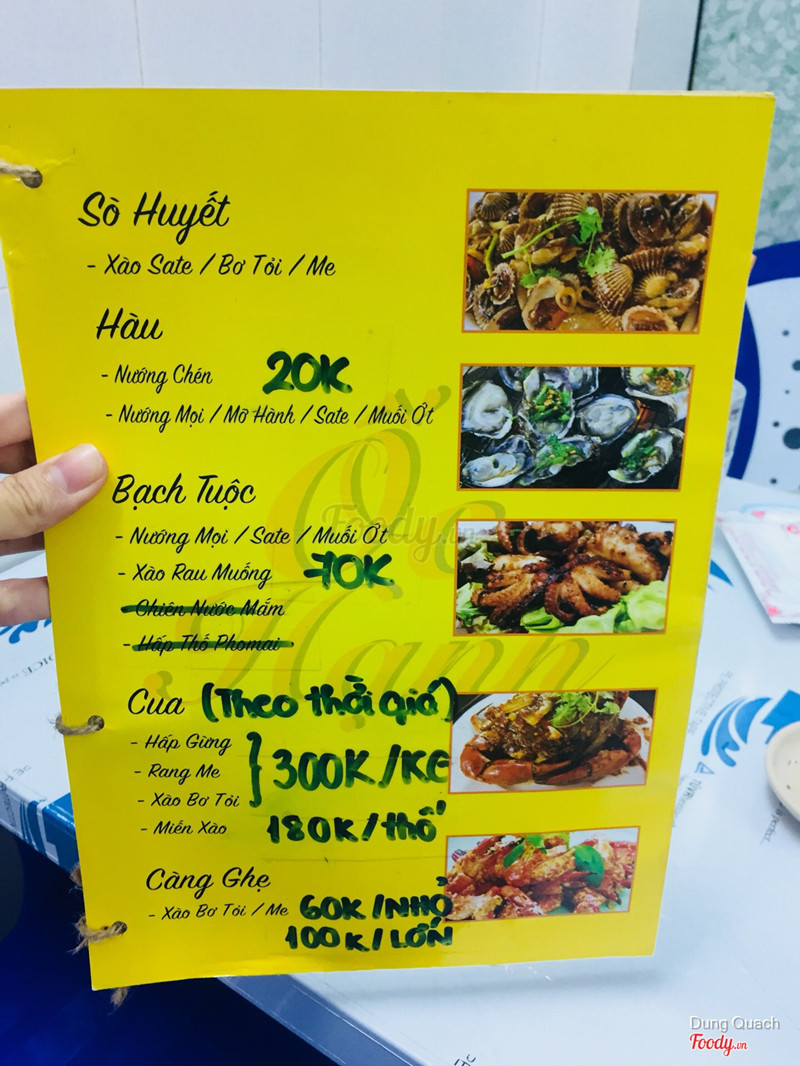 Sò Huyết
- Xào Sate / Bơ Tỏi / Me
Hàu
- Nướng Chén 20K
- Nướng Mọi / Mỡ Hành / Sate / Muối Ớt
Bạch Tuộc
- Nướng Mọi / Sate / Muối Ớt
- Xào Rau Muống 70K
- Chiên Nước Mắm
- Hấp Thố Phomai
Cua (Theo thời giá)
- Hấp Gừng
- Rang Me
- Xào Bơ Tỏi
300K/KG
- Miến Xào 180K/thố
Càng Ghẹ
- Xào Bơ Tỏi / Me 60K/NHỎ
100K/LỚN
Ốc
Hạnh
Foody.vn
Dung Quach
Foody.vn